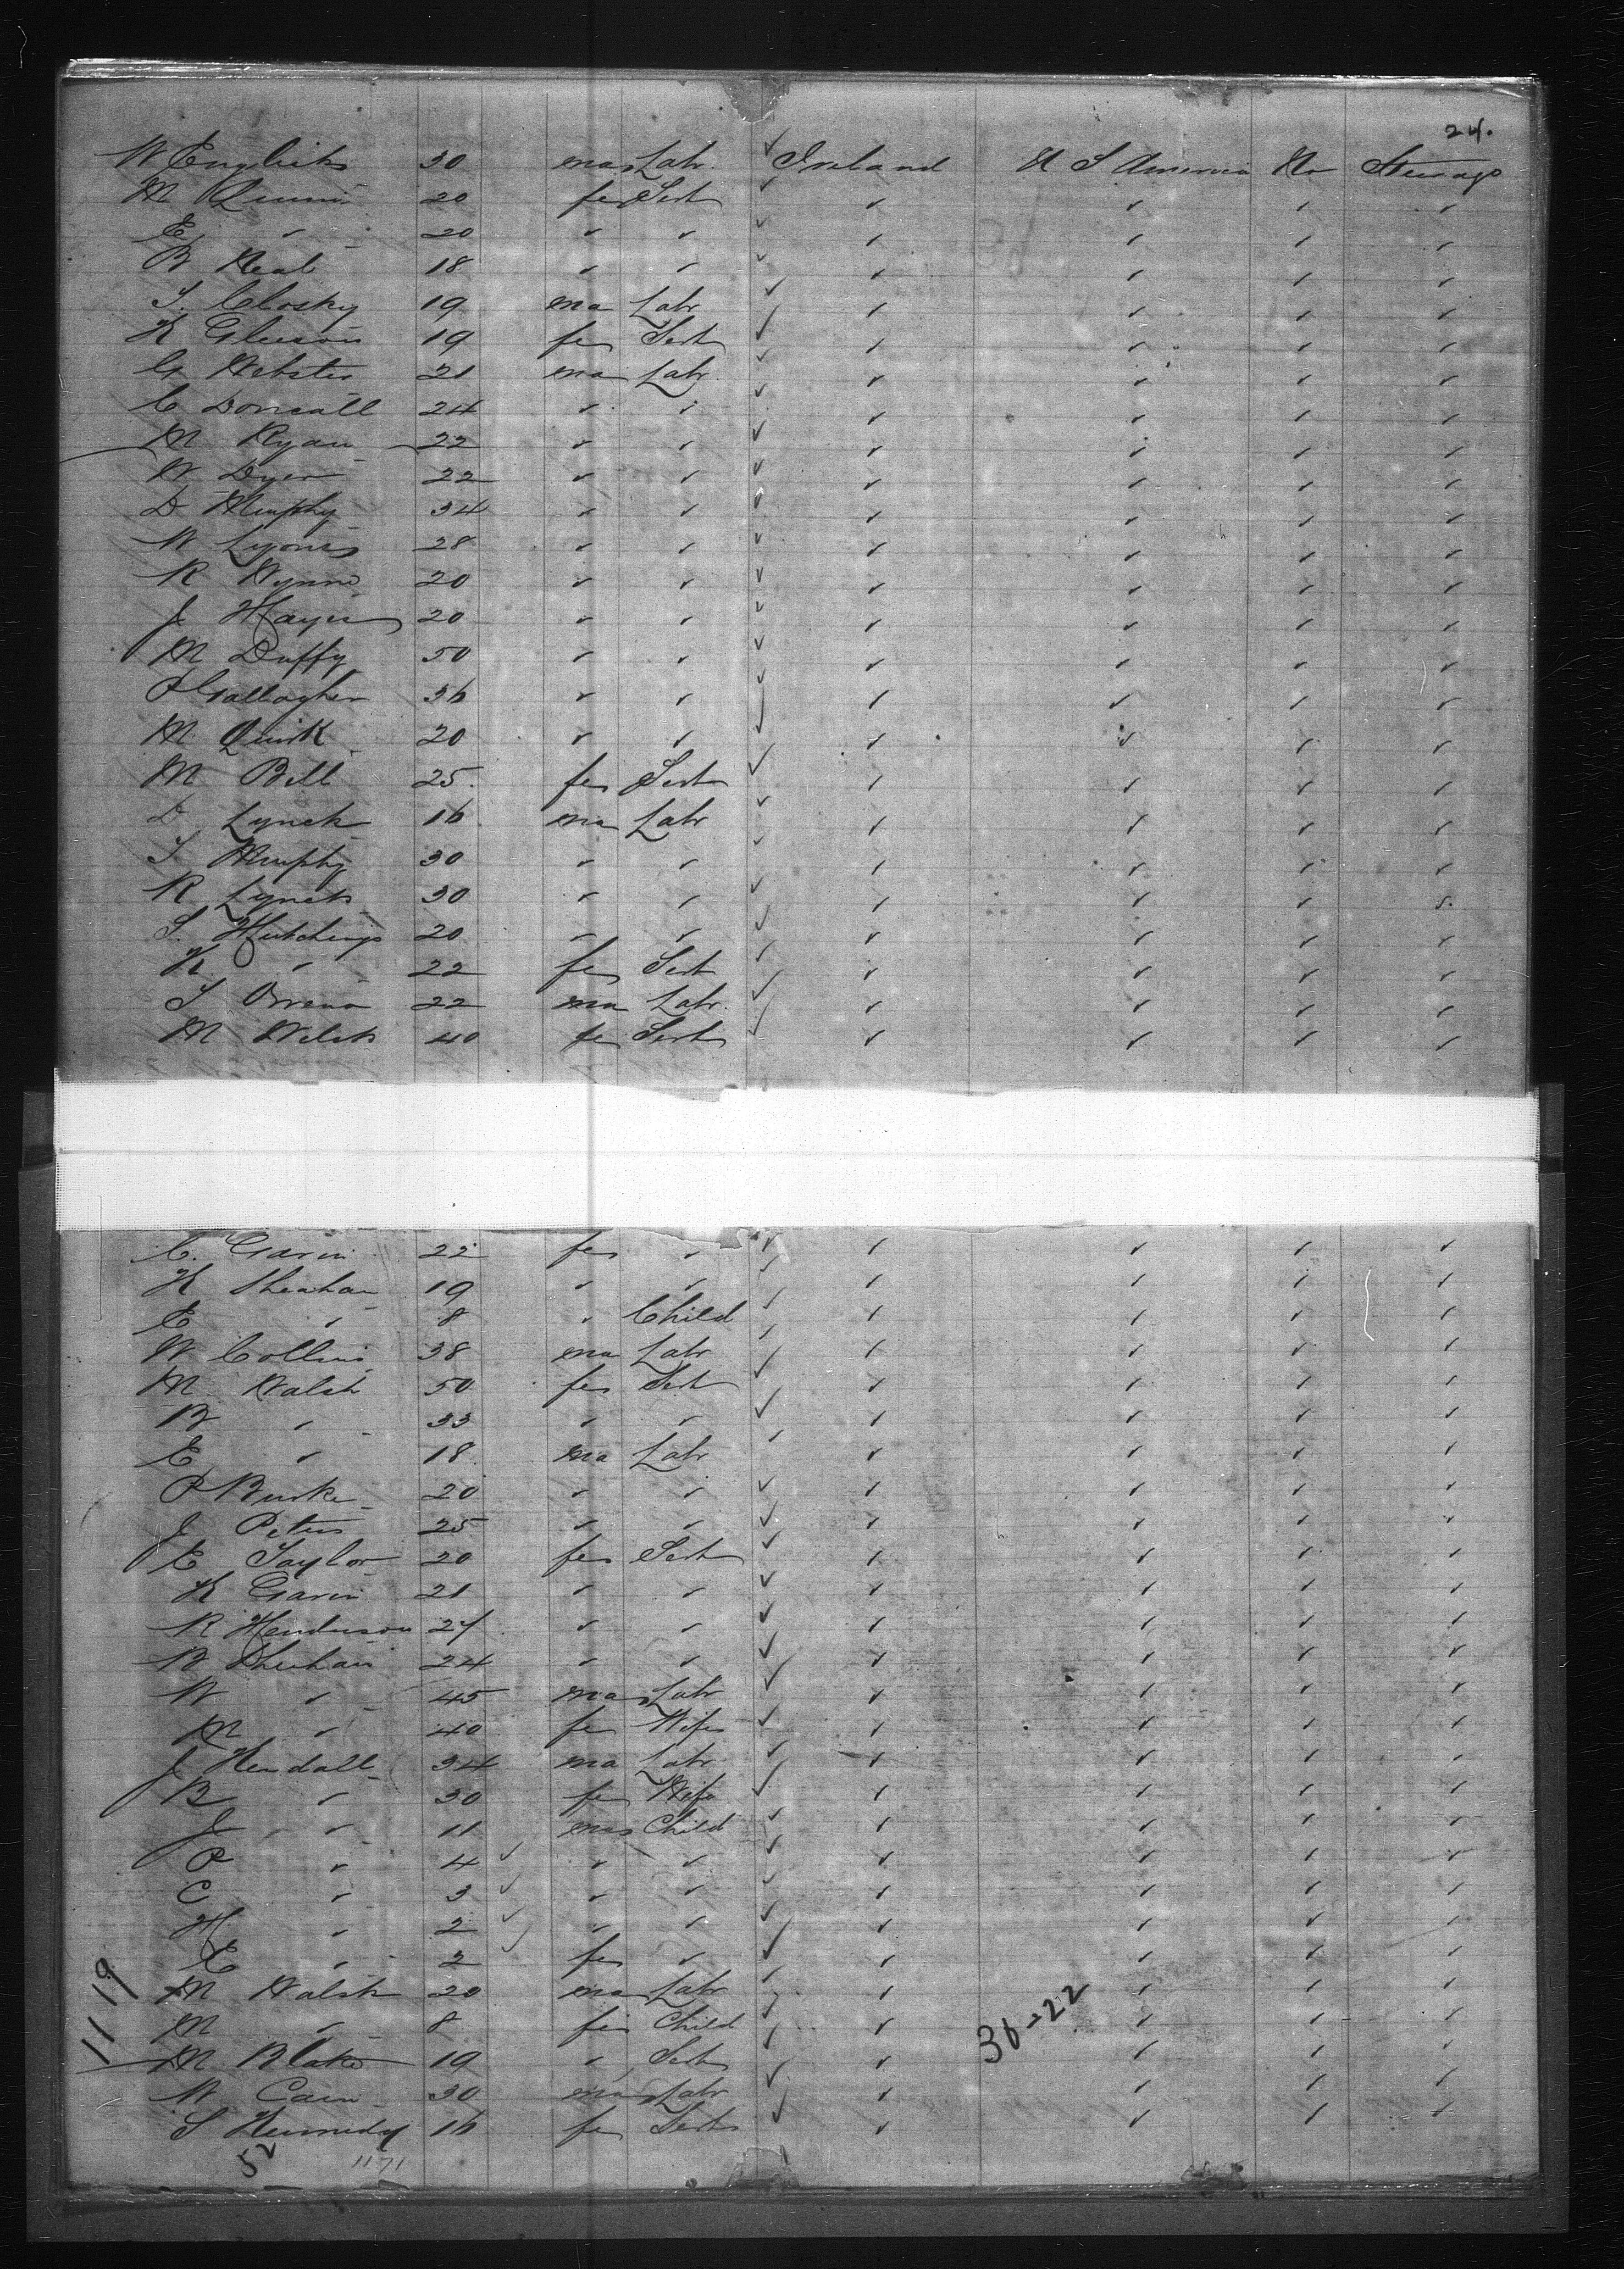 24.
W English 30 ma Labr Ireland U S America No Steerage
M Quinn 20 fe Servt " " " "
E " 20 " " " " " "
B Neal 18 " " " " " "
T. Closky 19 ma Labr " " " "
K Gleeson 19 fe Servt " " " "
G Webster 21 ma Labr " " " "
C Doncall 24 " " " " " "
M Ryan 22 " " " " " "
W Dyer 22 " " " " " "
D Murphy 34 " " " " " "
W Lyons 28 " " " " " "
R Wynne 20 " " " " " "
J Hayes 20 " " " " " "
M Duffy 50 " " " " " "
P Gallagher 36 " " " " " "
M Quirk 20 " " " " " "
M Bell 25 fe Servt " " " "
D Lynch 16 ma Labr " " " "
T Murphy 30 " " " " " "
R Lynch 30 " " " " " "
S. Hutchings 20 " " " " " "
K " 22 fe Servt " " " "
S 22 ma Labr " " " "
M Welsh 40 fe Servt " " " "
C. Gavin 22 fe " " " " "
K Sheahan 19 " " " " " "
E " 8 " Child " " " "
W Collins 38 ma Labr " " " "
M Walsh 50 fe Servt " " " "
B " 33 " " " " " "
E " 18 ma Labr " " " "
P Burke 20 " " " " " "
J Peters 25 " " " " " "
E Taylor 20 fe Servt " " " "
K Gavin 21 " " " " " "
R Henderson 27 " " " " " "
B Sheehan 24 " " " " " "
W " 45 ma Labr " " " "
M " 40 fe Wife " " " "
J Kendall 34 ma Labr " " " "
B " 30 fe Wife " " " "
J " 11 ma Child " " " "
P " 4 " " " " " "
C " 3 " " " " " "
H " 2 " " " " " "
E " 2 fe " " " " "
M Walsh 20 ma Labr " " " "
M " 8 fe Child " " " "
M Blake 19 " Servt " " " "
W Cain 30 ma Labr " " " "
S Kennedy 16 fe Servt " " " "
11 19
36-22
52
1171